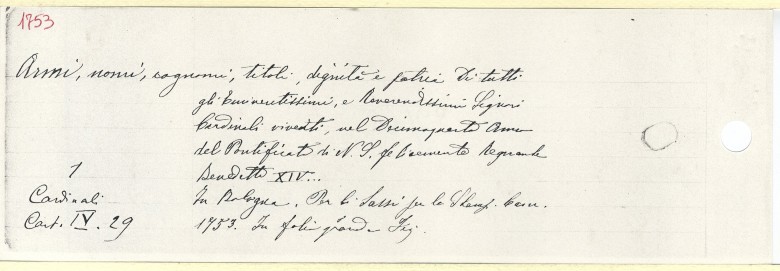 1753
Armi, nomi, cognomi, titoli, dignità e patria di tutti
gli Eminentissimi, e Reverendissimi Signori
Cardinali viventi, nel Decimoquarto Anno
del Pontificato di N. S. felicemente Regnante
Benedetto XIV...
In Bologna. Per li Sassi per la Stamp. Cam.
1753. In folio grande Fig.
1
Cardinali
Cart. IV. 29